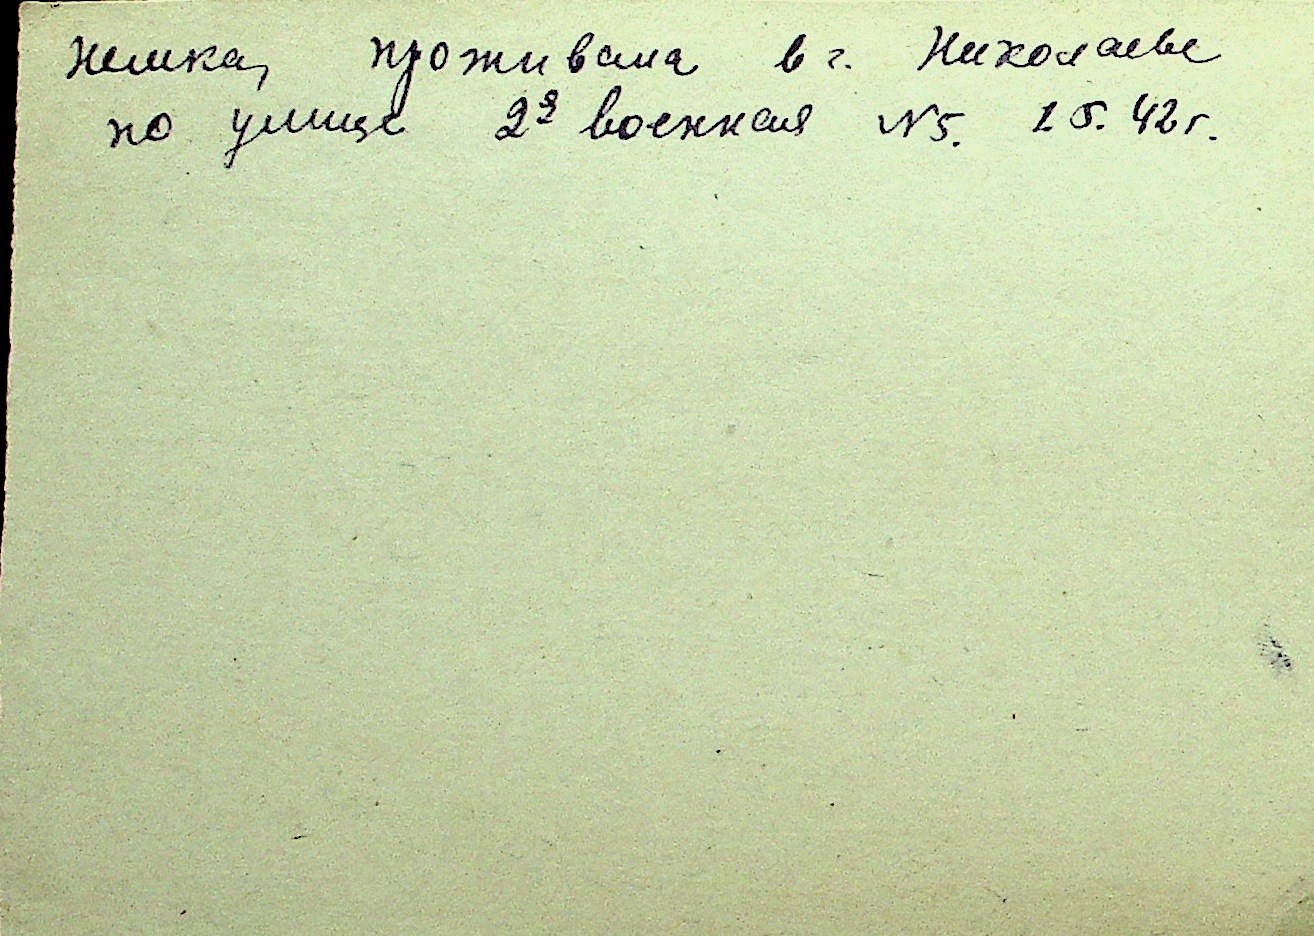 немка, проживала в г. Николаеве
по улице 2я военная №5. 15.42г.